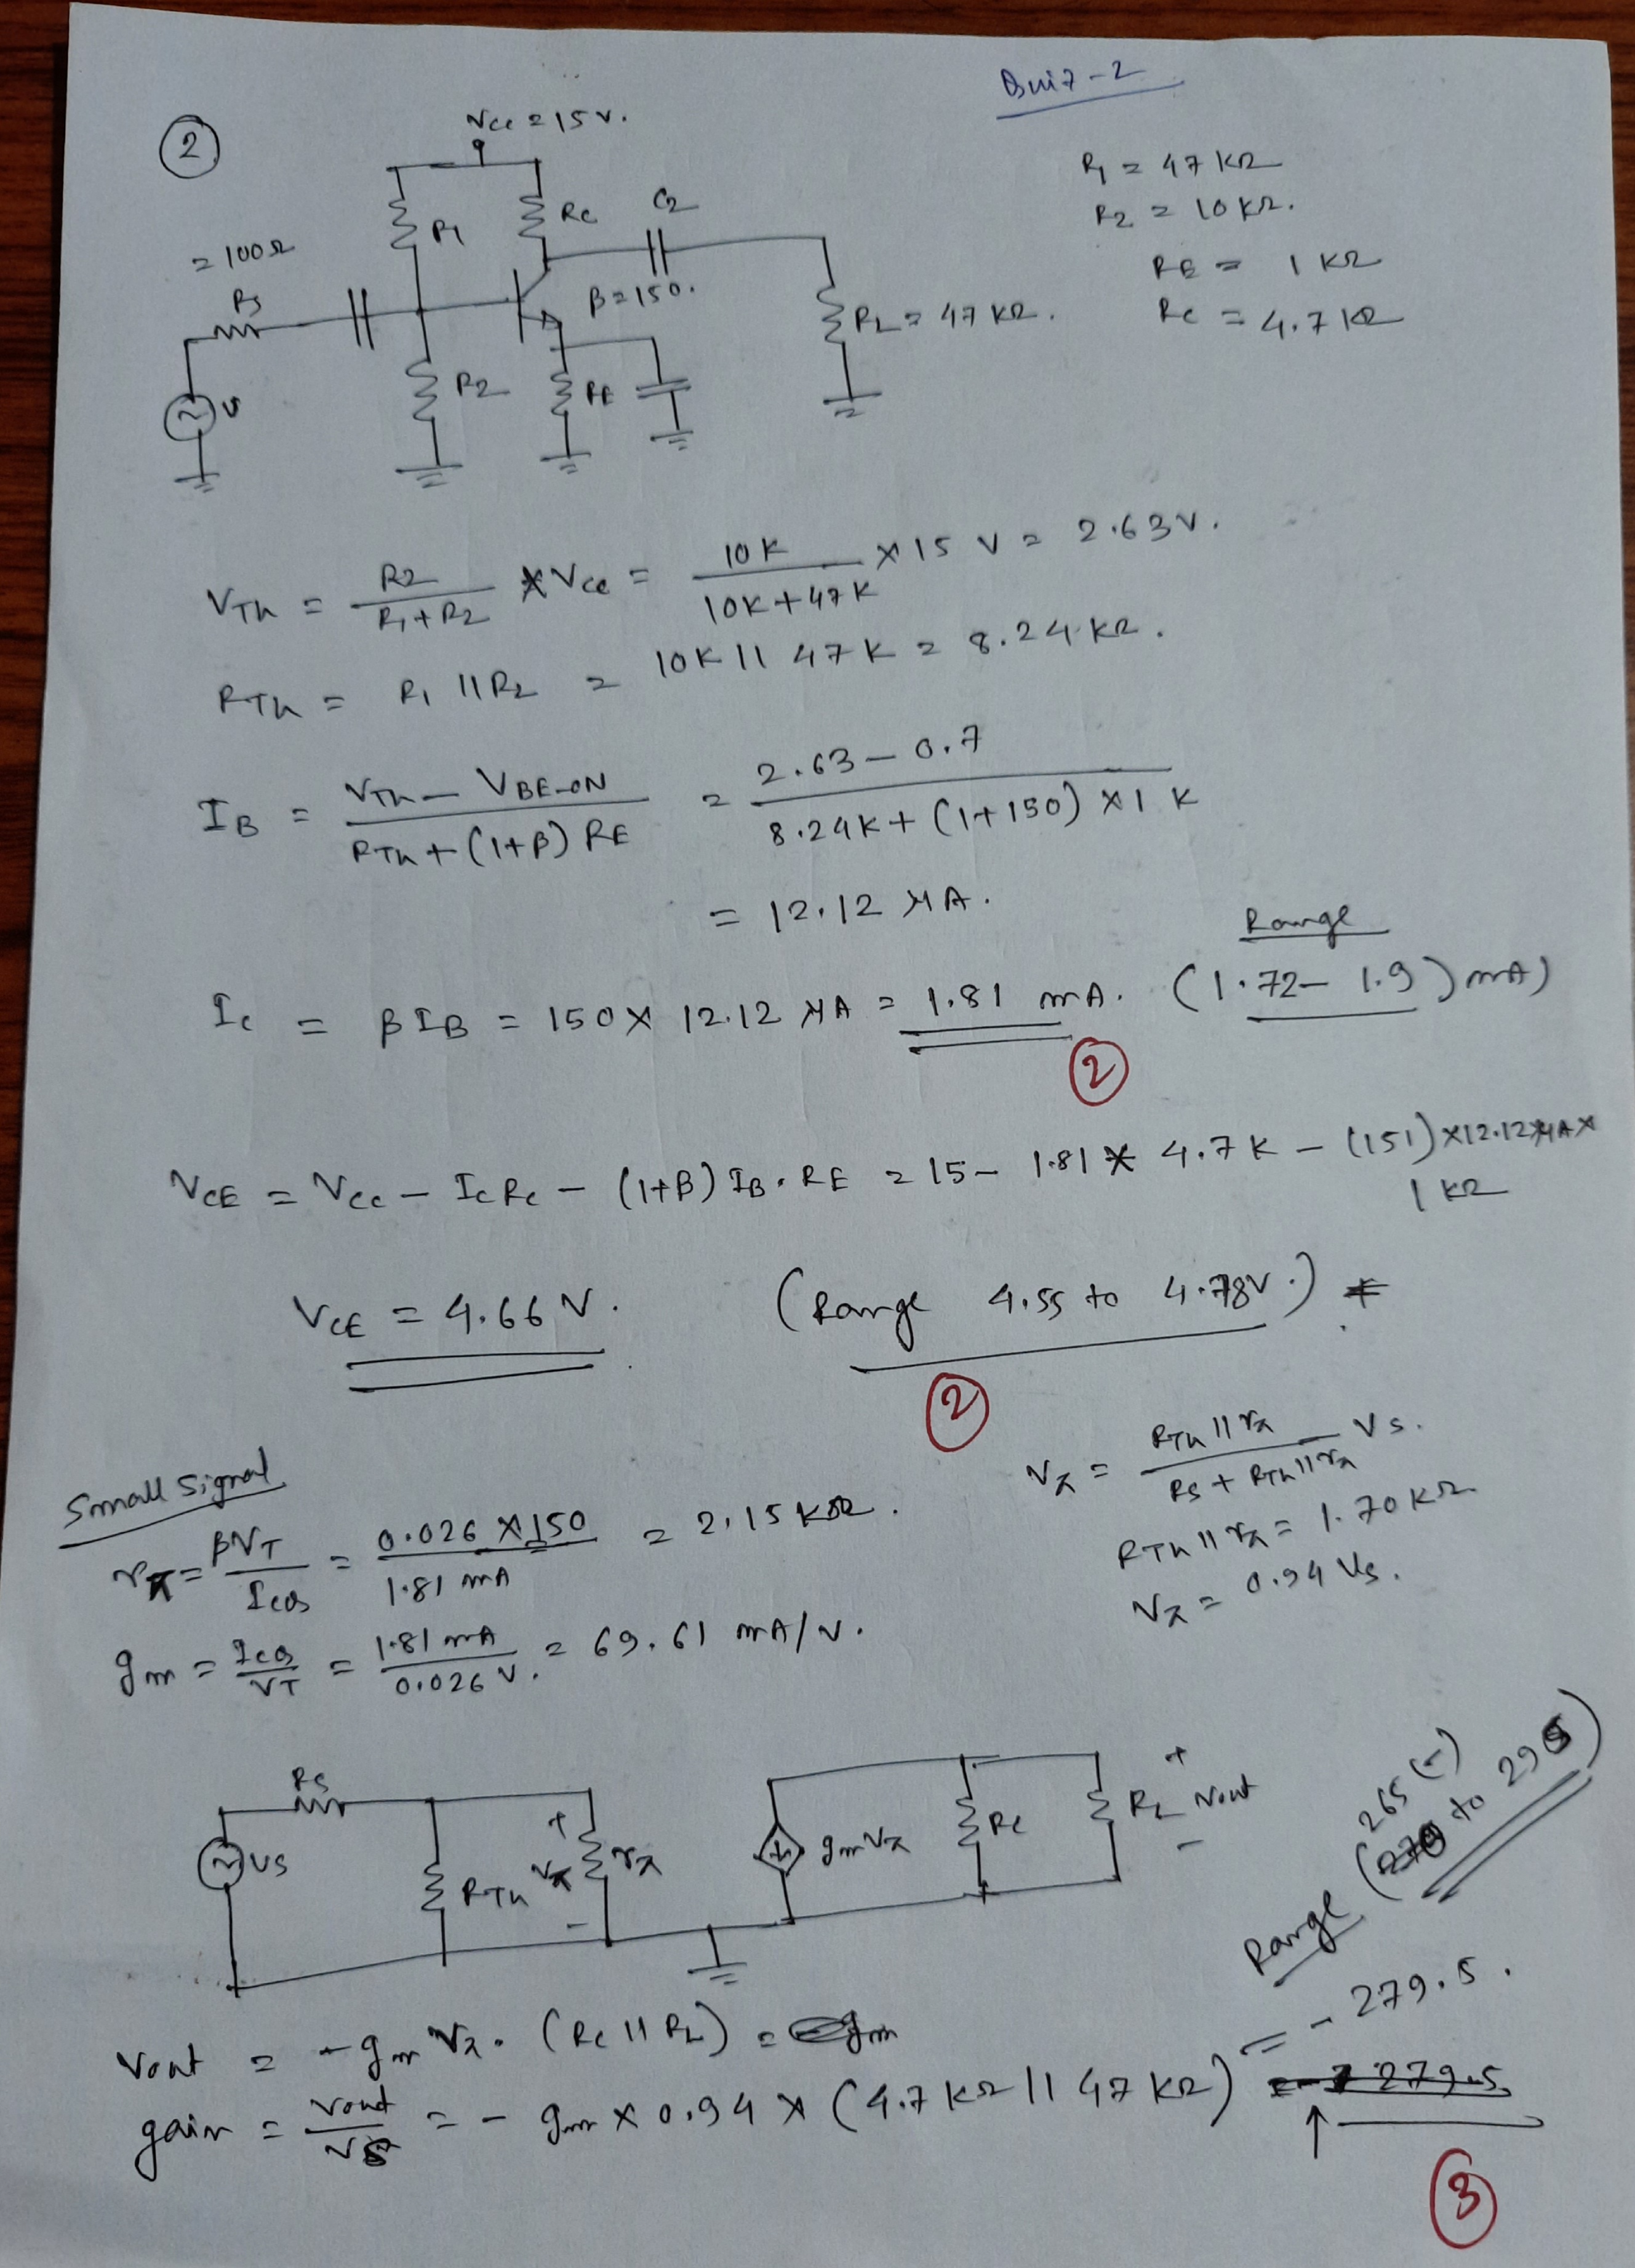 Quiz-2
②
Vcc = 15V.
R1 = 47 KΩ
R2 = 10 KΩ.
RE = 1 KΩ
Rc = 4.7 KΩ
= 100Ω
Rs
R1
Rc
C2
β = 150.
RL = 47 KΩ.
R2
RE
V
VTh = R2 / (R1 + R2) * Vcc = 10K / (10K + 47K) × 15 V = 2.63V.
RTh = R1 || R2 = 10K || 47K = 8.24 KΩ.
IB = (VTh - VBE-ON) / (RTh + (1+β) RE) = (2.63 - 0.7) / (8.24K + (1+150) × 1 K)
= 12.12 μA.
Range
Ic = βIB = 150 × 12.12 μA = 1.81 mA. (1.72 - 1.9) mA)
②
VCE = Vcc - IcRc - (1+β) IB. RE = 15 - 1.81 * 4.7K - (151) × 12.12 μA ×
1 KΩ
VCE = 4.66 V. (Range 4.55 to 4.78V.)
②
Small Signal
rπ = βVT / ICQ = 0.026 × 150 / 1.81 mA = 2.15 KΩ.
gm = ICQ / VT = 1.81 mA / 0.026 V. = 69.61 mA/V.
Vπ = RTh || rπ / (Rs + RTh || rπ) Vs.
RTh || rπ = 1.70 KΩ
Vπ = 0.94 Vs.
Rs
Vs
RTh
+
Vπ
-
rπ
gmVπ
Rc
RL
+
Vout
-
Range
265 (-)
to
Vout = -gm Vπ. (Rc || RL) = gm
gain = Vout / Vs = - gm × 0.94 × (4.7 KΩ || 47 KΩ) = - 279.5.
279.5
③